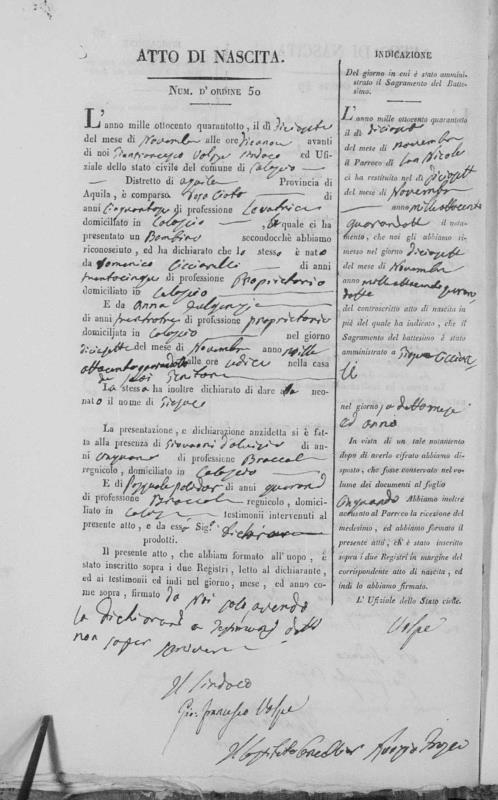 ATTO DI NASCITA.
NUM. D'ORDINE 50
L'anno mille ottocento quarantotto, il dì diciasette
del mese di Novembre alle ore avanti
di noi Gianfrancesco Volpe Sindaco ed Ufi-
ziale dello stato civile del comune di Calascio
Distretto di Aquila Provincia di
Aquila, è comparsa
anni di professione Levatrice
domiciliata in Calascio, la quale ci ha
presentato un Bambino secondocchè abbiamo
riconosciuto, ed ha dichiarato che lo stesso è nato
da Domenico Cicciarelli di anni
trentacinque di professione Proprietario
domiciliato in Calascio
E da Anna Fulgenzia
di anni trentatre di professione proprietaria
domiciliata in Calascio nel giorno
diciasette del mese di Novembre anno mille
ottocentoquarantotto alle ore undici nella casa
de suoi Genitori
La stessa ha inoltre dichiarato di dare al neo-
nato il nome di
La presentazione, e dichiarazione anzidetta si è fat-
ta alla presenza di Giovanni d'Aloisio di an-
ni cinquanta di professione Braccial
regnicolo, domiciliato in Calascio
E di Pasquale di anni quaranta
di professione Braccial regnicolo, domici-
liato in Calascio testimoni intervenuti al
presente atto, e da esso Sig.
prodotti.
Il presente atto, che abbiam formato all'uopo, è
stato inscritto sopra i due Registri, letto al dichiarante,
ed ai testimonii ed indi nel giorno, mese, ed anno co-
me sopra, firmato da Noi solo avendo
la dichiarante e testimoni detto
non saper scrivere
Il Sindaco
Gio: Francesco Volpe
INDICAZIONE
Del giorno in cui è stato ammini-
strato il Sagramento del Batte-
simo.
L'anno mille ottocento quarantotto
il dì diciasette
del mese di Novembre
il Parroco di San Nicola
ci ha restituito nel dì diciasette
del mese di Novembre
anno mille ottocento
quarantotto il nota-
mento, che noi gli abbiamo ri-
messo nel giorno diciasette
del mese di Novembre
anno mille ottocento quaran
totto
del controscritto atto di nascita in
piè del quale ha indicato, che il
Sagramento del battesimo è stato
amministrato a
nel giorno, a detto mese
ed anno
In vista di un tale notamento
dopo di averlo cifrato abbiamo di-
sposto, che fosse conservato nel vo-
lume dei documenti al foglio
cinquanta Abbiamo inoltre
accusato al Parroco la ricezione del
medesimo, ed abbiamo formato il
presente atto, ch'è stato inscritto
sopra i due Registri in margine del
corrispondente atto di nascita, ed
indi lo abbiamo firmato.
L' Ufiziale dello Stato civile.
Volpe